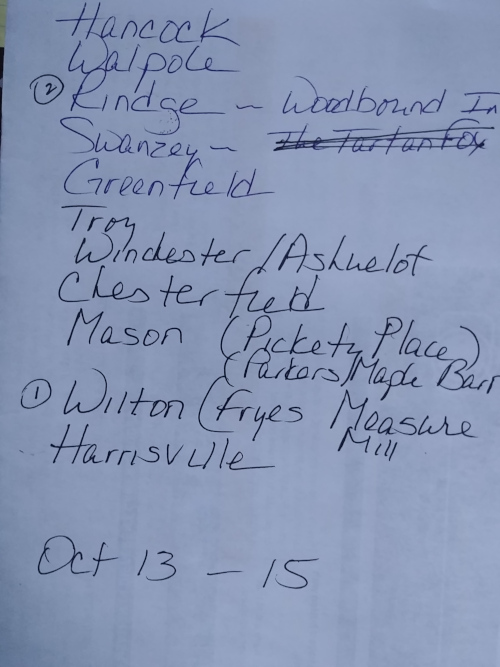 Hancock
Walpole
② Rindge - Woodbound In
Swanzey - The Tartan Fox
Greenfield
Troy
Winchester/Ashuelot
Chesterfield
Mason (Pickety Place)
(Parkers/Maple Barn
① Wilton (Fryes Measure
Mill
Harrisville
Oct 13 - 15